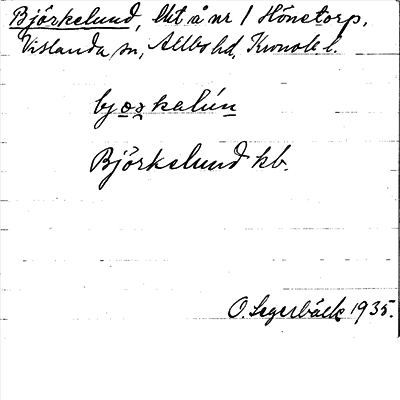 Björkelund, lht å nr 1 Hönetorp,
Vislanda sn, Allbo hd, Kronob. l.
bjorkelún
Björkelund kb.
O. Segerbäck 1935.